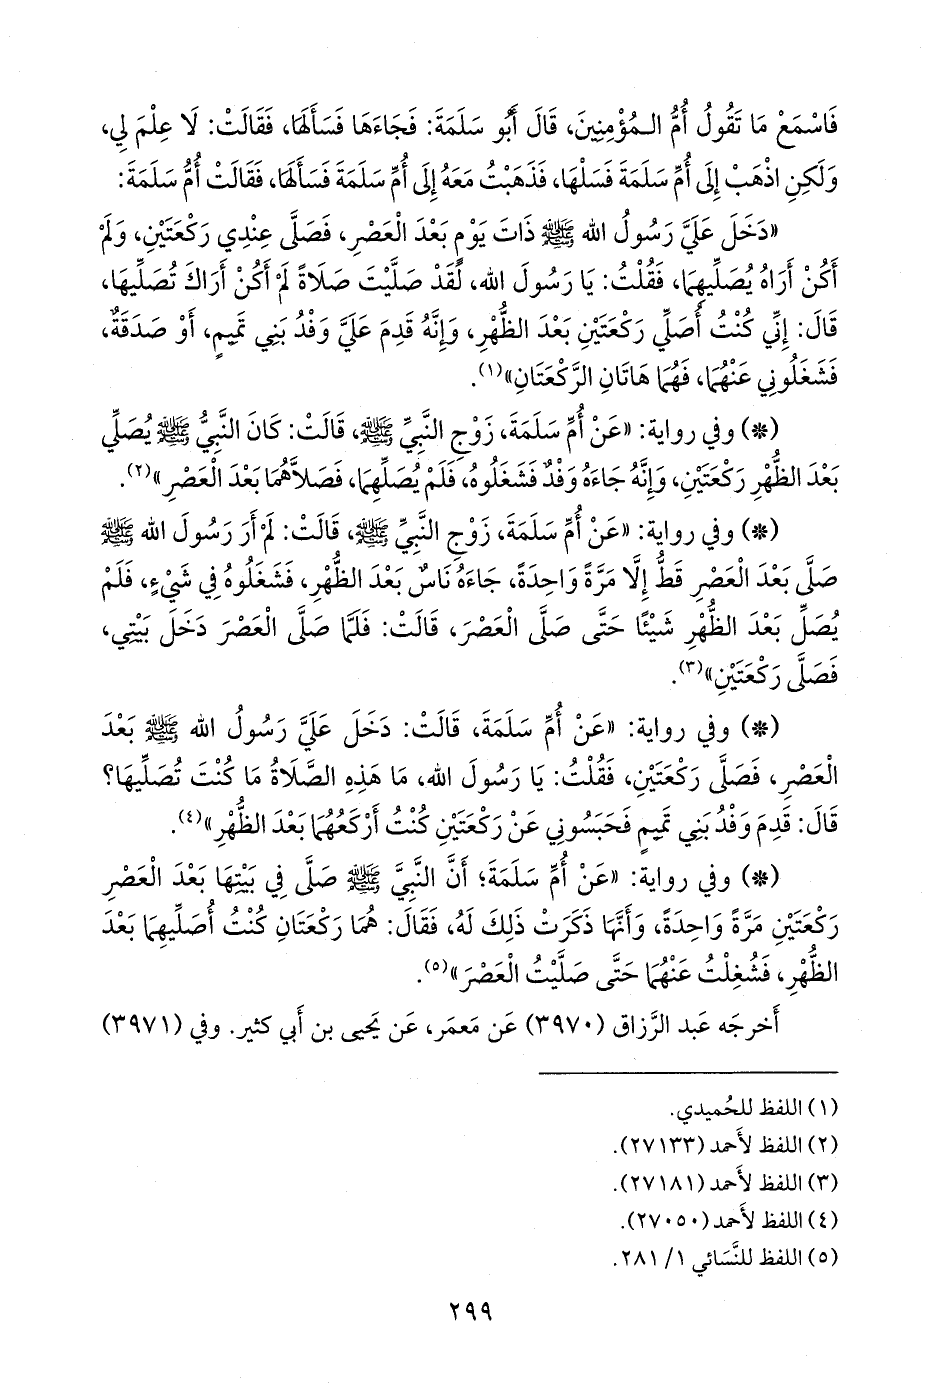 فَاسْمَعْ مَا تَقُولُ أُمُّ الـمُؤْمِنِينَ، قَالَ أَبُو سَلَمَةَ: فَجَاءَهَا فَسَأَلَهَا، فَقَالَتْ: لَا عِلْمَ لِي،
وَلَكِنِ اذْهَبْ إِلَى أُمِّ سَلَمَةَ فَسَلْهَا، فَذَهَبْتُ مَعَهُ إِلَى أُمِّ سَلَمَةَ فَسَأَلَهَا، فَقَالَتْ أُمُّ سَلَمَةَ:
«دَخَلَ عَلَيَّ رَسُولُ الله ﷺ ذَاتَ يَوْمٍ بَعْدَ الْعَصْرِ، فَصَلَّى عِنْدِي رَكْعَتَيْنِ، وَلَمْ
أَكُنْ أَرَاهُ يُصَلِّيهِمَا، فَقُلْتُ: يَا رَسُولَ الله، لَقَدْ صَلَّيْتَ صَلَاةً لَمْ أَكُنْ أَرَاكَ تُصَلِّيهَا،
قَالَ: إِنِّي كُنْتُ أُصَلِّي رَكْعَتَيْنِ بَعْدَ الظُّهْرِ، وَإِنَّهُ قَدِمَ عَلَيَّ وَفْدُ بَنِي تَمِيمٍ، أَوْ صَدَقَةٌ،
فَشَغَلُونِي عَنْهُمَا، فَهُمَا هَاتَانِ الرَّكْعَتَانِ»(١).
(*) وفي رواية: «عَنْ أُمِّ سَلَمَةَ، زَوْجِ النَّبِيِّ ﷺ، قَالَتْ: كَانَ النَّبِيُّ ﷺ يُصَلِّي
بَعْدَ الظُّهْرِ رَكْعَتَيْنِ، وَإِنَّهُ جَاءَهُ وَفْدٌ فَشَغَلُوهُ، فَلَمْ يُصَلِّهِمَا، فَصَلاَّهُمَا بَعْدَ الْعَصْرِ»(٢).
(*) وفي رواية: «عَنْ أُمِّ سَلَمَةَ، زَوْجِ النَّبِيِّ ﷺ، قَالَتْ: لَمْ أَرَ رَسُولَ الله ﷺ
صَلَّى بَعْدَ الْعَصْرِ قَطُّ إِلَّا مَرَّةً وَاحِدَةً، جَاءَهُ نَاسٌ بَعْدَ الظُّهْرِ، فَشَغَلُوهُ فِي شَيْءٍ، فَلَمْ
يُصَلِّ بَعْدَ الظُّهْرِ شَيْئًا حَتَّى صَلَّى الْعَصْرَ، قَالَتْ: فَلَمَّا صَلَّى الْعَصْرَ دَخَلَ بَيْتِي،
فَصَلَّى رَكْعَتَيْنِ»(٣).
(*) وفي رواية: «عَنْ أُمِّ سَلَمَةَ، قَالَتْ: دَخَلَ عَلَيَّ رَسُولُ الله ﷺ بَعْدَ
الْعَصْرِ، فَصَلَّى رَكْعَتَيْنِ، فَقُلْتُ: يَا رَسُولَ الله، مَا هَذِهِ الصَّلَاةُ مَا كُنْتَ تُصَلِّيهَا؟
قَالَ: قَدِمَ وَفْدُ بَنِي تَمِيمٍ فَحَبَسُونِي عَنْ رَكْعَتَيْنِ كُنْتُ أَرْكَعُهُمَا بَعْدَ الظُّهْرِ»(٤).
(*) وفي رواية: «عَنْ أُمِّ سَلَمَةَ؛ أَنَّ النَّبِيَّ ﷺ صَلَّى فِي بَيْتِهَا بَعْدَ الْعَصْرِ
رَكْعَتَيْنِ مَرَّةً وَاحِدَةً، وَأَنَّهَا ذَكَرَتْ ذَلِكَ لَهُ، فَقَالَ: هُمَا رَكْعَتَانِ كُنْتُ أُصَلِّيهِمَا بَعْدَ
الظُّهْرِ، فَشُغِلْتُ عَنْهُمَا حَتَّى صَلَّيْتُ الْعَصْرَ»(٥).
أَخرجَه عَبد الرَّزاق (٣٩٧٠) عَن مَعمَر، عَن يَحيى بن أَبي كثير. وفي (٣٩٧١)
(١) اللفظ للحُميدي.
(٢) اللفظ لأَحمد (٢٧١٣٣).
(٣) اللفظ لأَحمد (٢٧١٨١).
(٤) اللفظ لأَحمد (٢٧٠٥٠).
(٥) اللفظ للنَّسَائي ١/ ٢٨١.
٢٩٩